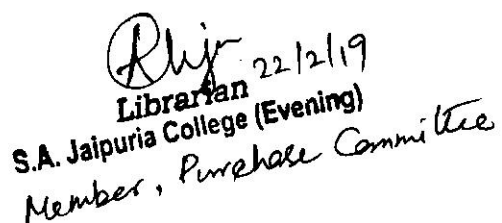 22/2/19
Librarian
S.A. Jaipuria College (Evening)
Member, Purchase Committee